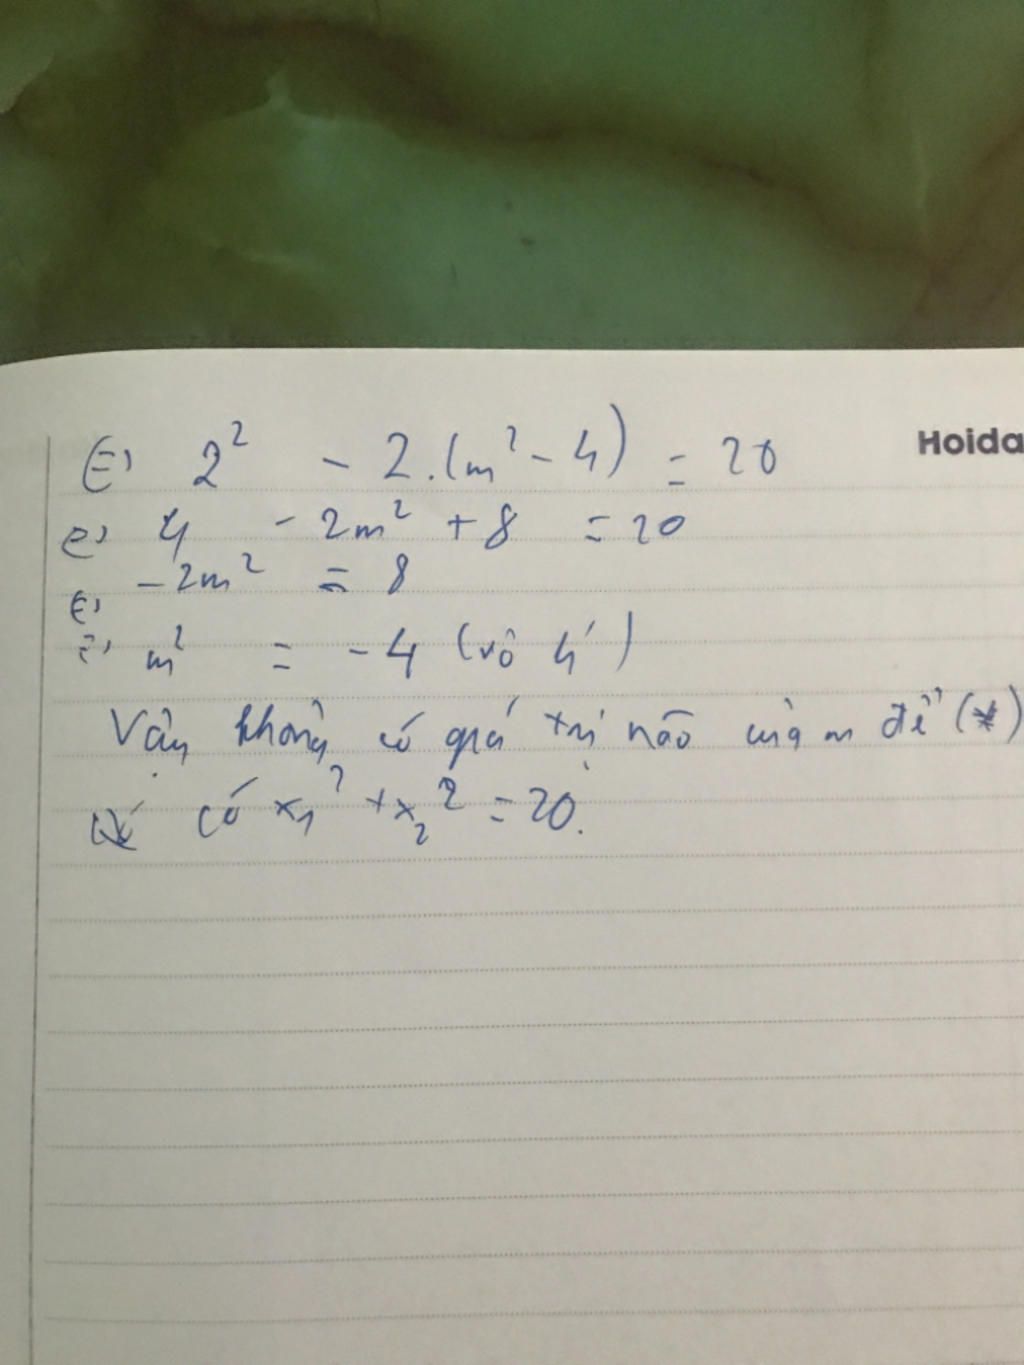 Hoida
⇔ 2² - 2.(m² - 4) = 20
⇔ 4 - 2m² + 8 = 20
⇔ -2m² = 8
⇔ m² = -4 (vô lí)
Vậy không có giá trị nào của m để (*)
có x₁² + x₂² = 20.